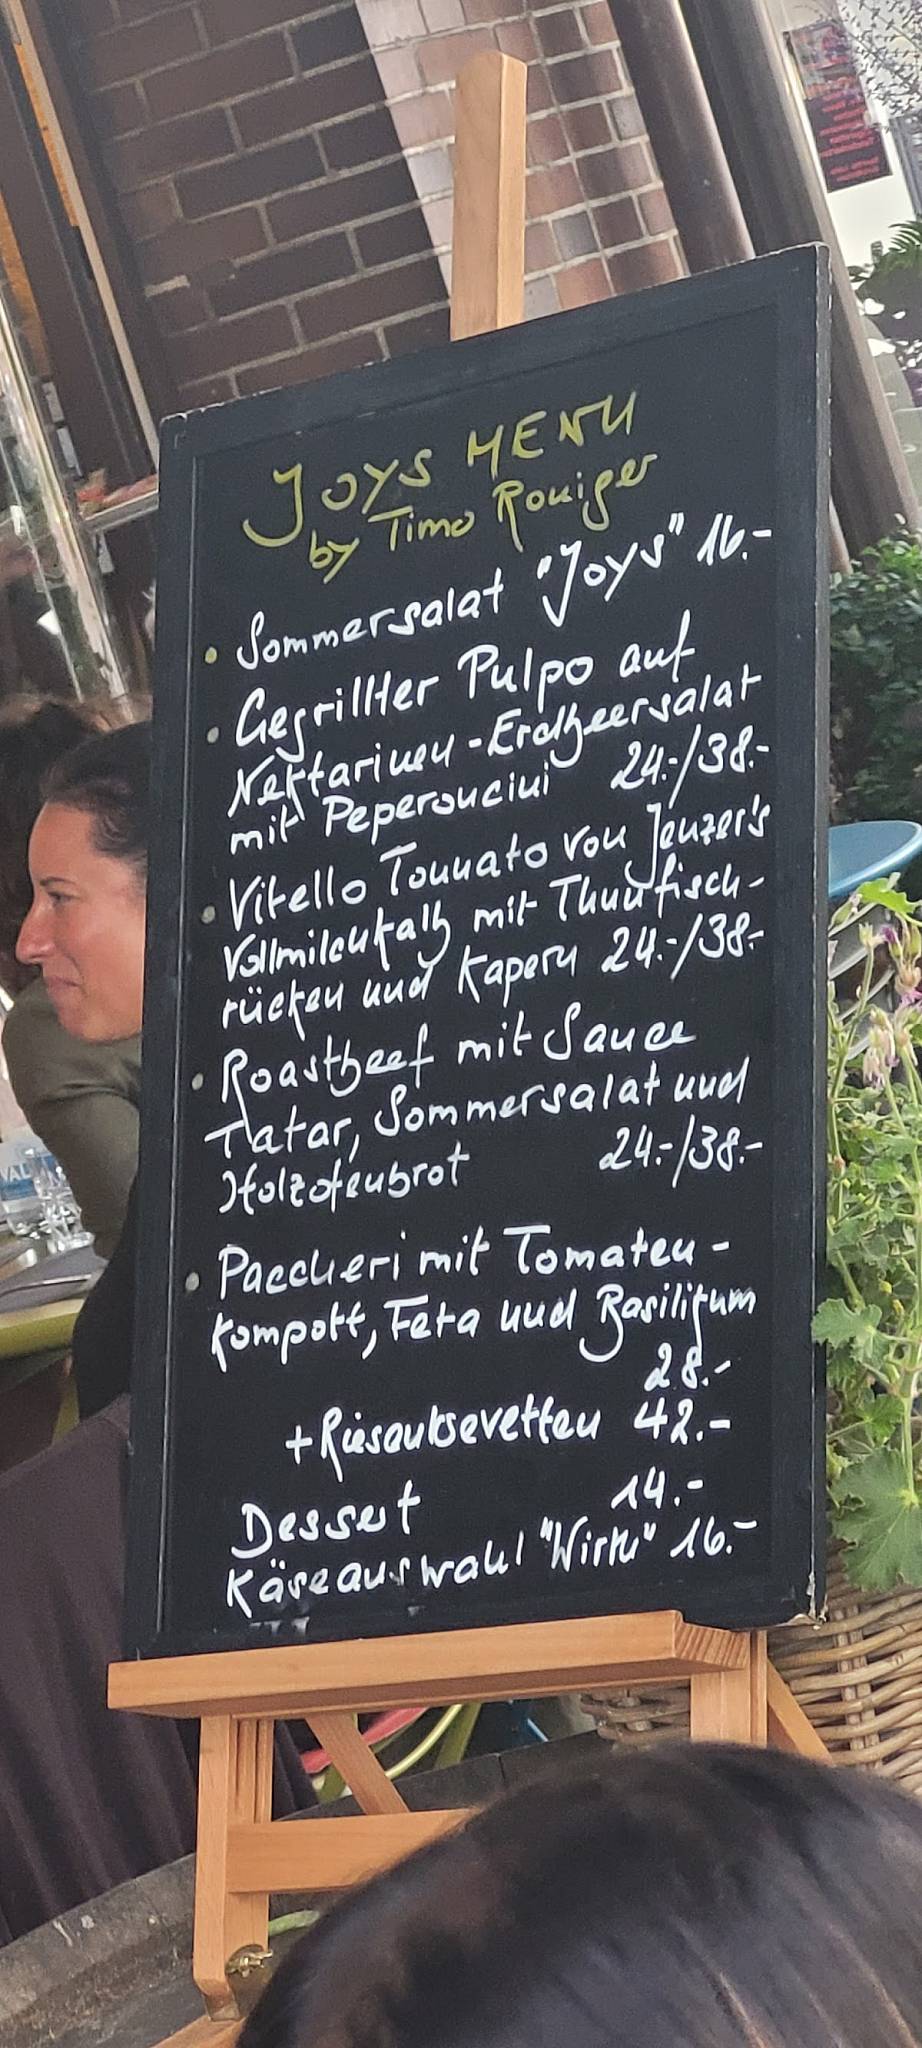 JOYS MENU
by Timo Roniger
• Sommersalat "Joys" 16.-
• Gegrillter Pulpo auf
Nektarinen-Erdbeersalat
mit Peperoncini 24.-/38.-
• Vitello Tonnato von Jenzer's
Vollmilchkalb mit Thunfisch-
rücken und Kapern 24.-/38.-
• Roastbeef mit Sauce
Tatar, Sommersalat und
Holzofenbrot 24.-/38.-
• Paccheri mit Tomaten-
kompott, Feta und Basilikum
28.-
+Riesenkrevetten 42.-
Dessert 14.-
Käseauswahl "Wirth" 16.-